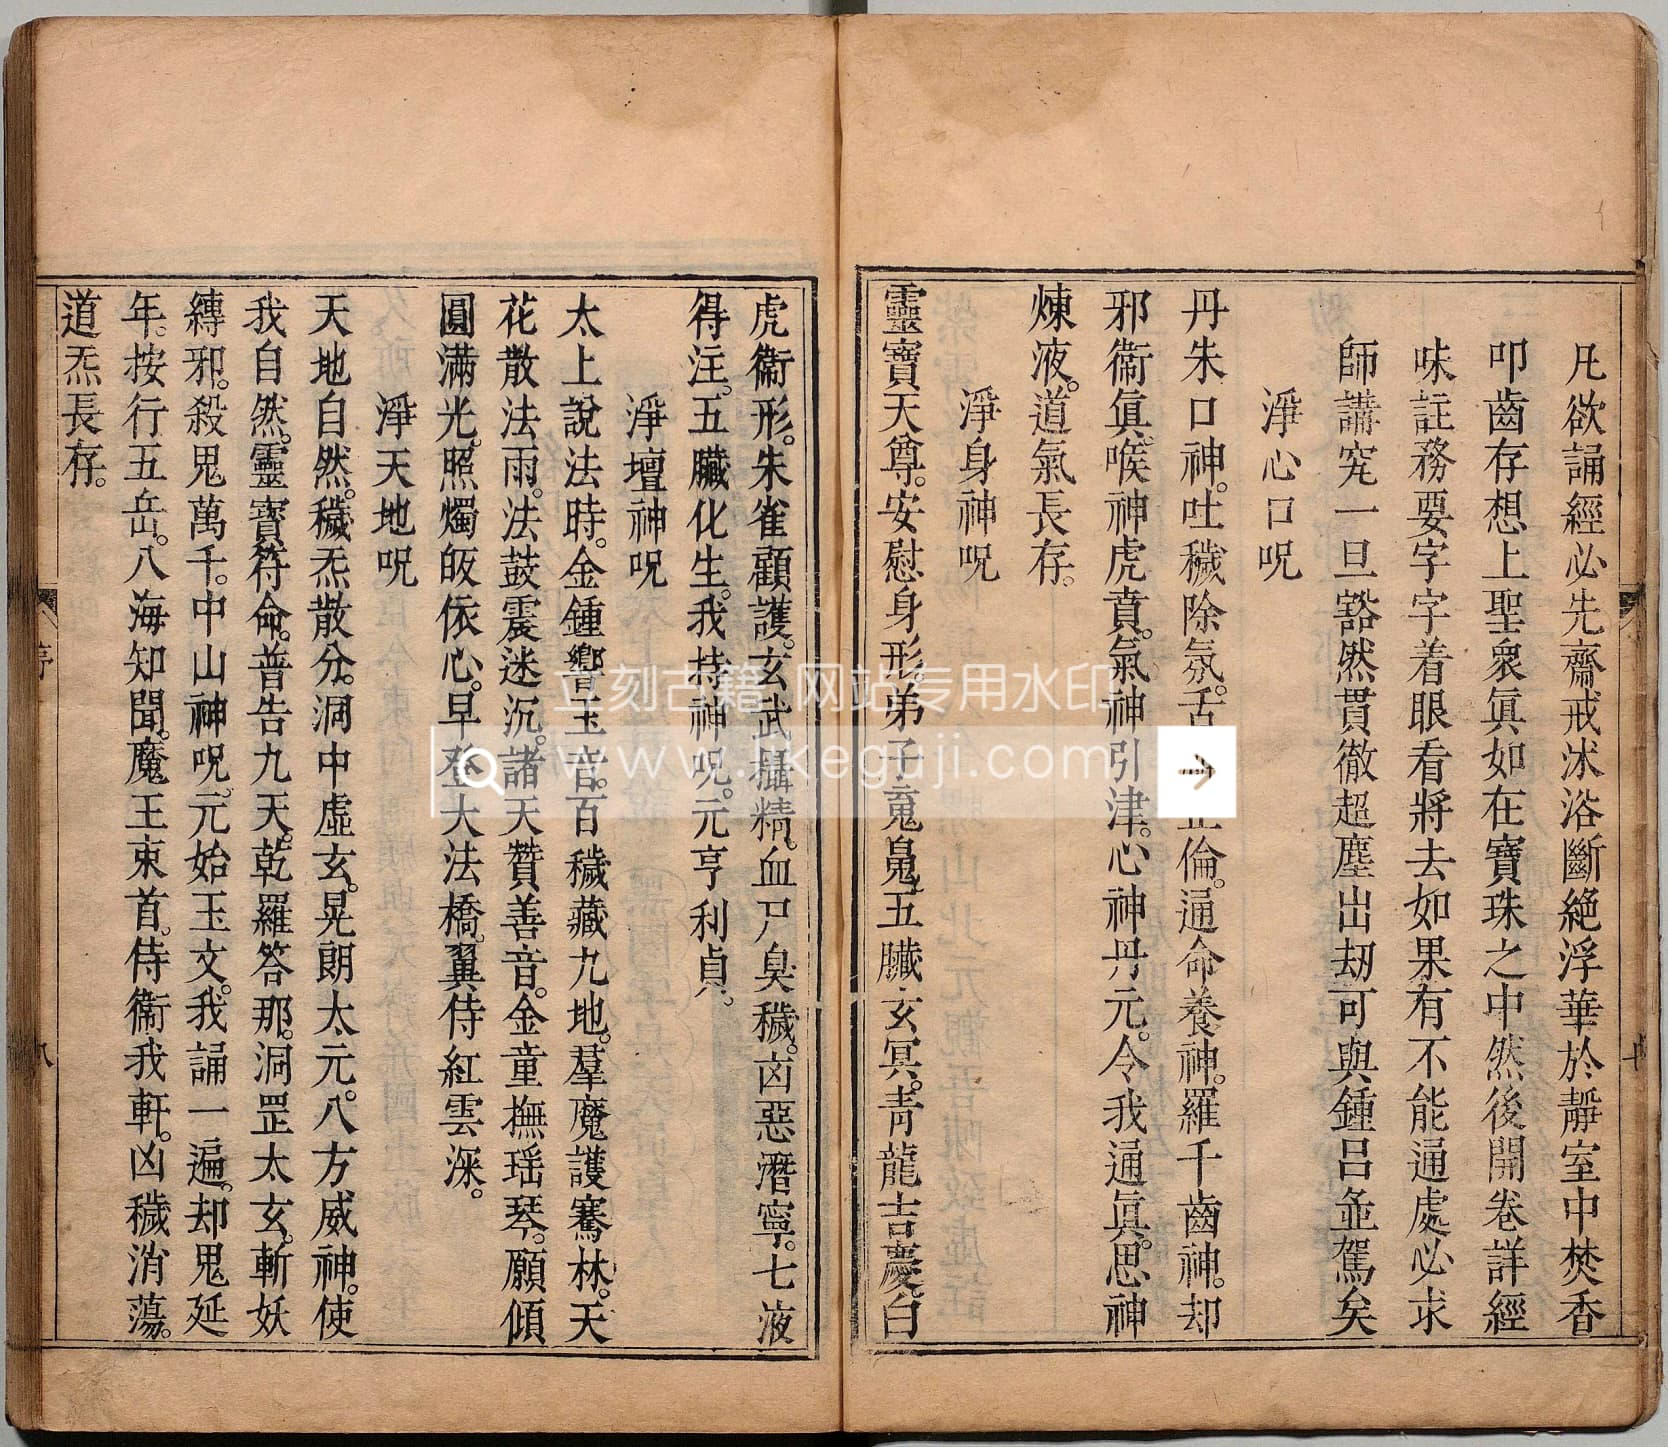 凡欲誦經必先齋戒沐浴斷絕浮華於靜室中焚香
叩齒存想上聖衆眞如在寶珠之中然後開卷詳經
味註務要字字着眼看將去如果有不能通處必求
師講究一旦豁然貫徹超塵出劫可與鍾呂並駕矣
淨心口呪
丹朱口神。吐穢除氛。舌 正倫。通命養神。羅千齒神。却
邪衞眞。喉神虎賁。氣神引津。心神丹元。令我通眞。思神
煉液。道氣長存。
淨身神呪
靈寶天尊。安慰身形。弟子䰟䰟五臟玄冥。靑龍吉慶。白
虎衞形。朱雀顧護。玄武攝精。血尸臭穢。㐫惡潛寧。七液
得注。五臟化生。我持神呪。元亨利貞。
淨壇神呪
太上說法時。金鍾響玉音。百穢藏九地。羣魔護騫林。天
花散法雨。法鼓震迷沉。諸天贊善音。金童撫瑶琴。願傾
圓滿光。照燭皈依心。早登大法橋。翼侍紅雲深。
淨天地呪
天地自然。穢炁散分。洞中虛玄。晃朗太元。八方威神。使
我自然。靈寶符命。普告九天。乾羅答那。洞罡太玄。斬妖
縛邪。殺鬼萬千。中山神呪。元始玉文。我誦一遍。却鬼延
年。按行五岳。八海知聞。魔王束首。侍衞我軒。凶穢消蕩。
道炁長存。
序
八
立刻古籍 网站专用水印
www.lkeguji.com